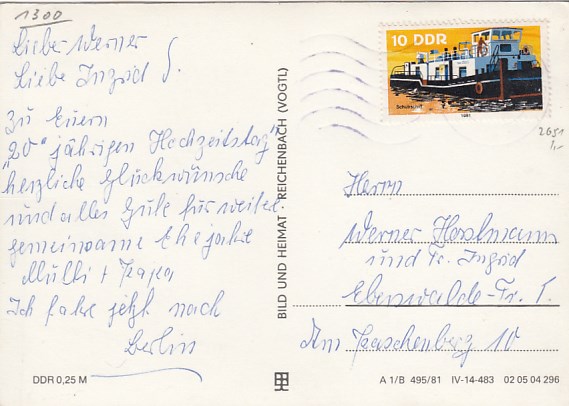 1300
Lieber Werner
Liebe Ingrid S.
Zu Euern
"20" jährigen Hochzeitstag
herzliche Glückwünsche
und alles Gute für weitere
gemeinsame Ehejahre
Mutti + Papa
Ich fahre jetzt nach
Berlin
DDR 0,25 M
BILD UND HEIMAT · REICHENBACH (VOGTL)
10 DDR
Schubschiff
1981
2651
1,-
Herrn
Werner Horlmann
und Fr. Ingrid
Eberswalde-Fr. 1.
Am Paschenberg 10
A 1/B 495/81 IV-14-483 02 05 04 296